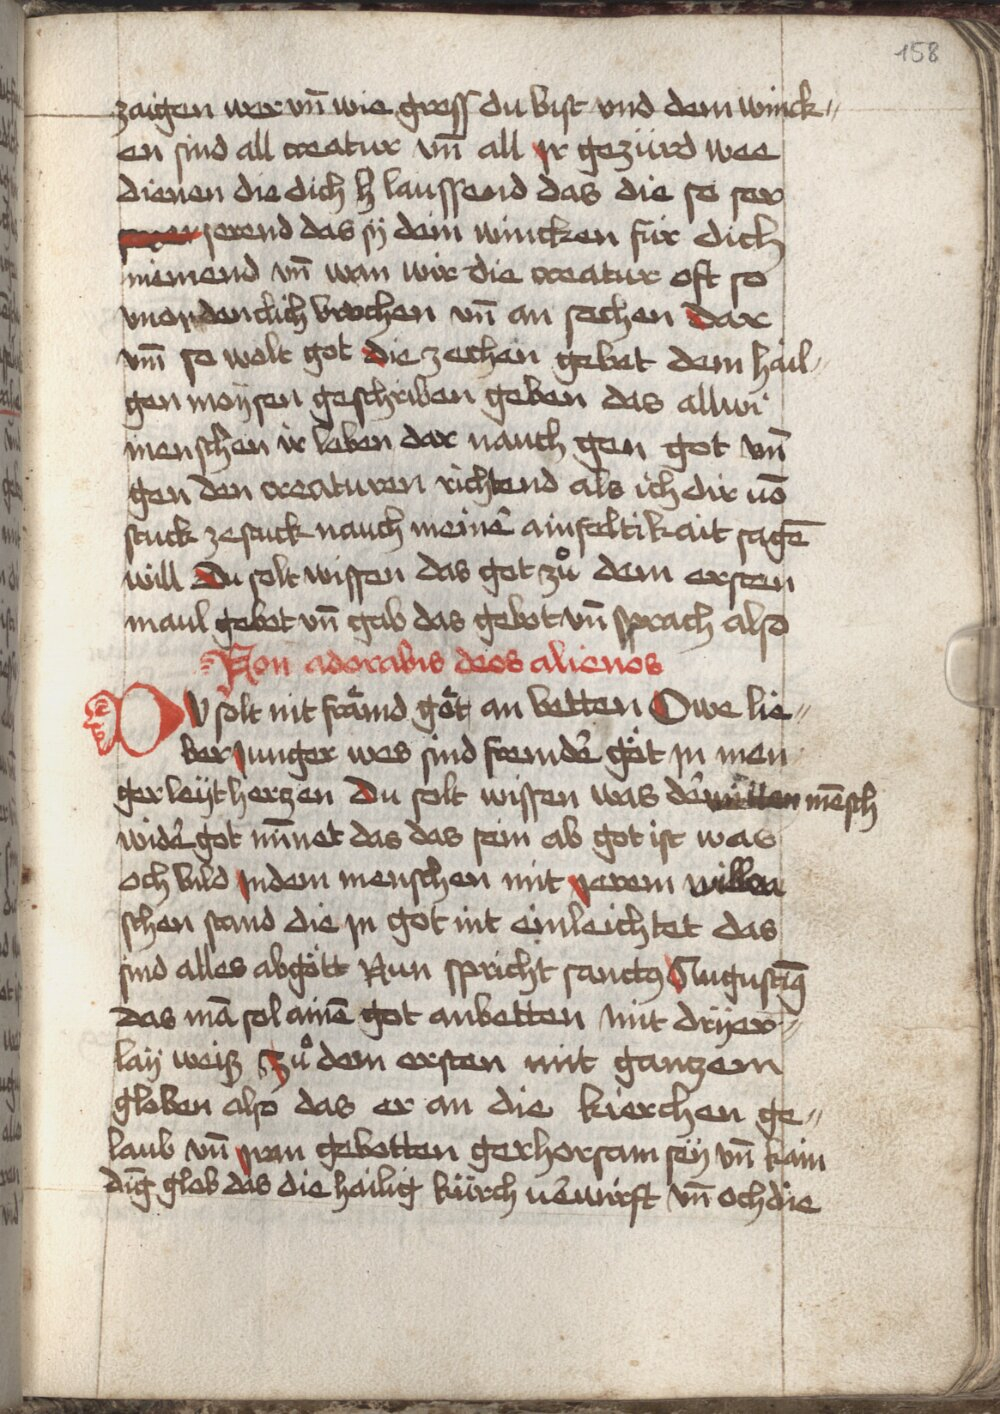 158
zaigen wer vn̄ wie gross du bist vnd dem winck〃
en sind all creatur vn̄ all jr gezürd wee
dienen die dich h laussend das die so ser
serend das sy dein wincken für dich
niemend vn̄ wan wir die creatur oft so
vnordenclich bruchen vn̄ an sechen dar
vm̄ so wolt got die zechen gebot dem hail〃
gen moÿsen geschriben geben das allwi
menschen ir leben dar nauch gen got vn̄
gen den creaturen richtend als ich dir uō
stuck ze stuck nauch meinē ainfeltikait sagē
will Du solt wissen das got zů dem ersten
maul gebot vn̄ gab das gebot vn̄ sprach also
Non adorabis deos alienos
DV solt nit främd göt an betten Owe lie〃
ber junger wes sind fremde göt jn men
gerleÿt herzen Du solt wissen was der mēsch
wider got minet das das sein ab got ist was
och bild jndem menschen mit yerem willen
schen stand die jn got nit einleichtet das
sind alles abgött Nun spricht sanctꝰ Augustinꝰ
das mā sol ainē got anbetten mit drÿer〃
laÿ weiß zů dem ersten mit ganzem
globen also das er an die kierchen ge〃
laub vn̄ jren gebotten gerhorsam seÿ vn̄ kain
ding glob das die hailig kürch uerwirft vn̄ och die